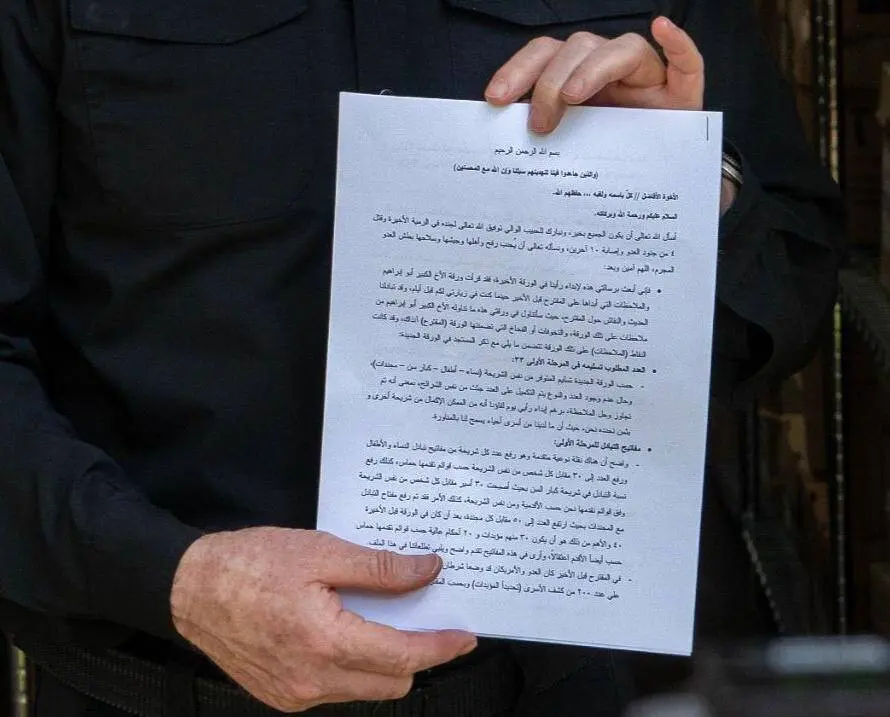 بسم الله الرحمن الرحيم
(والذين جاهدوا فينا لنهدينهم سبلنا وإن الله مع المحسنين)
الأخوة الأفاضل // كلّ باسمه ولقبه ... حفظهم الله.
السلام عليكم ورحمة الله وبركاته.
أسأل الله تعالى أن يكون الجميع بخير، ونبارك للحبيب الوالي توفيق الله تعالى لجنده في الرمية الأخيرة وقتل
٤ من جنود العدو وإصابة ١٠ آخرين، ونسأله تعالى أن يُجنب رفح وأهلها وجيشها وسلاحها بطش العدو
المجرم، اللهم آمين وبعد:
• فإني أبعث برسالتي هذه لإبداء رأينا في الورقة الأخيرة، فقد قرأت ورقة الأخ الكبير أبو إبراهيم
والملاحظات التي أبداها على المقترح قبل الأخير حينما كنت في زيارتي لكم قبل أيام، وقد تبادلنا
الحديث والنقاش حول المقترح، حيث سأتناول في ورقتي هذه ما تداوله الأخ الكبير أبو إبراهيم من
ملاحظات على تلك الورقة، والتخوفات أو الفخاخ التي تضمنتها الورقة (المقترح) آنذاك، وقد كانت
النقاط (الملاحظات) على تلك الورقة تتضمن ما يلي مع ذكر المستجد في الورقة الجديدة:
• العدد المطلوب تسليمه في المرحلة الأولى ٣٣:
- حسب الورقة الجديدة تسليم المتوفر من نفس الشريحة (نساء – أطفال – كبار سن – مجندات)،
وحال عدم وجود العدد والنوع يتم التكميل على العدد جثث من نفس الشرائح، بمعنى أنه تم
تجاوز وحل الملاحظة، برغم إبداء رأيي يوم لقاؤنا أنه من الممكن الإكمال من شريحة أخرى و
بثمن نحدده نحن، حيث أن ما لدينا من أسرى أحياء يسمح لنا بالمناورة.
• مفاتيح التبادل للمرحلة الأولى:
- واضح أن هناك نقلة نوعية متقدمة وهو رفع عدد كل شريحة من مفاتيح تبادل النساء والأطفال
ورفع العدد إلى ٣٠ مقابل كل شخص من نفس الشريحة حسب قوائم تقدمها حماس، كذلك رفع
نسبة التبادل في شريحة كبار السن بحيث أصبحت ٣٠ أسير مقابل كل شخص من نفس الشريحة
وفق قوائم نقدمها نحن حسب الأقدمية ومن نفس الشريحة، كذلك الأمر فقد تم رفع مفتاح التبادل
مع المجندات بحيث ارتفع العدد إلى ٥٠ مقابل كل مجندة، بعد أن كان في الورقة قبل الأخيرة
٤٠ والأهم من ذلك هو أن يكون ٣٠ منهم مؤبدات و ٢٠ أحكام عالية حسب قوائم تقدمها حماس
حسب أيضاً الأقدم اعتقالاً، وأرى في هذه المفاتيح تقدم واضح ويلبي تطلعاتنا في هذا الملف.
- في المقترح قبل الأخير كان العدو والأمريكان قد وضعا شرطان
على عدد ٢٠٠ من كشف الأسرى (تحديداً المؤبدات) وبحسب